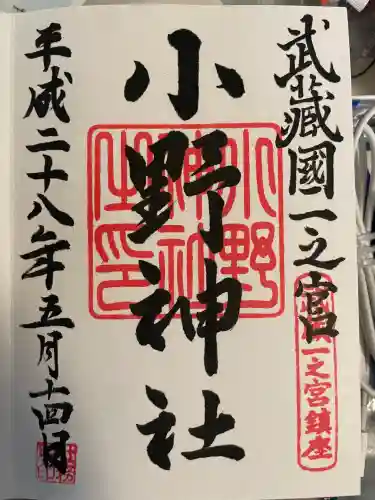 武蔵國一之宮
一之宮鎮座
小野神社
小野神社之印
平成二十八年五月十四日